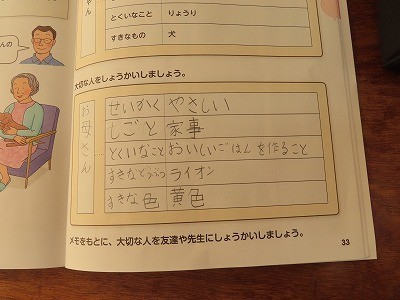 んの
ゃん
とくいなこと りょうり
すきなもの 犬
大切な人をしょうかいしましょう。
お母さん
せいかく やさしい
しごと 家事
とくいなこと おいしいごはんを作ること
すきなどうぶつ ライオン
すきな色 黄色
メモをもとに、大切な人を友達や先生にしょうかいしましょう。
33